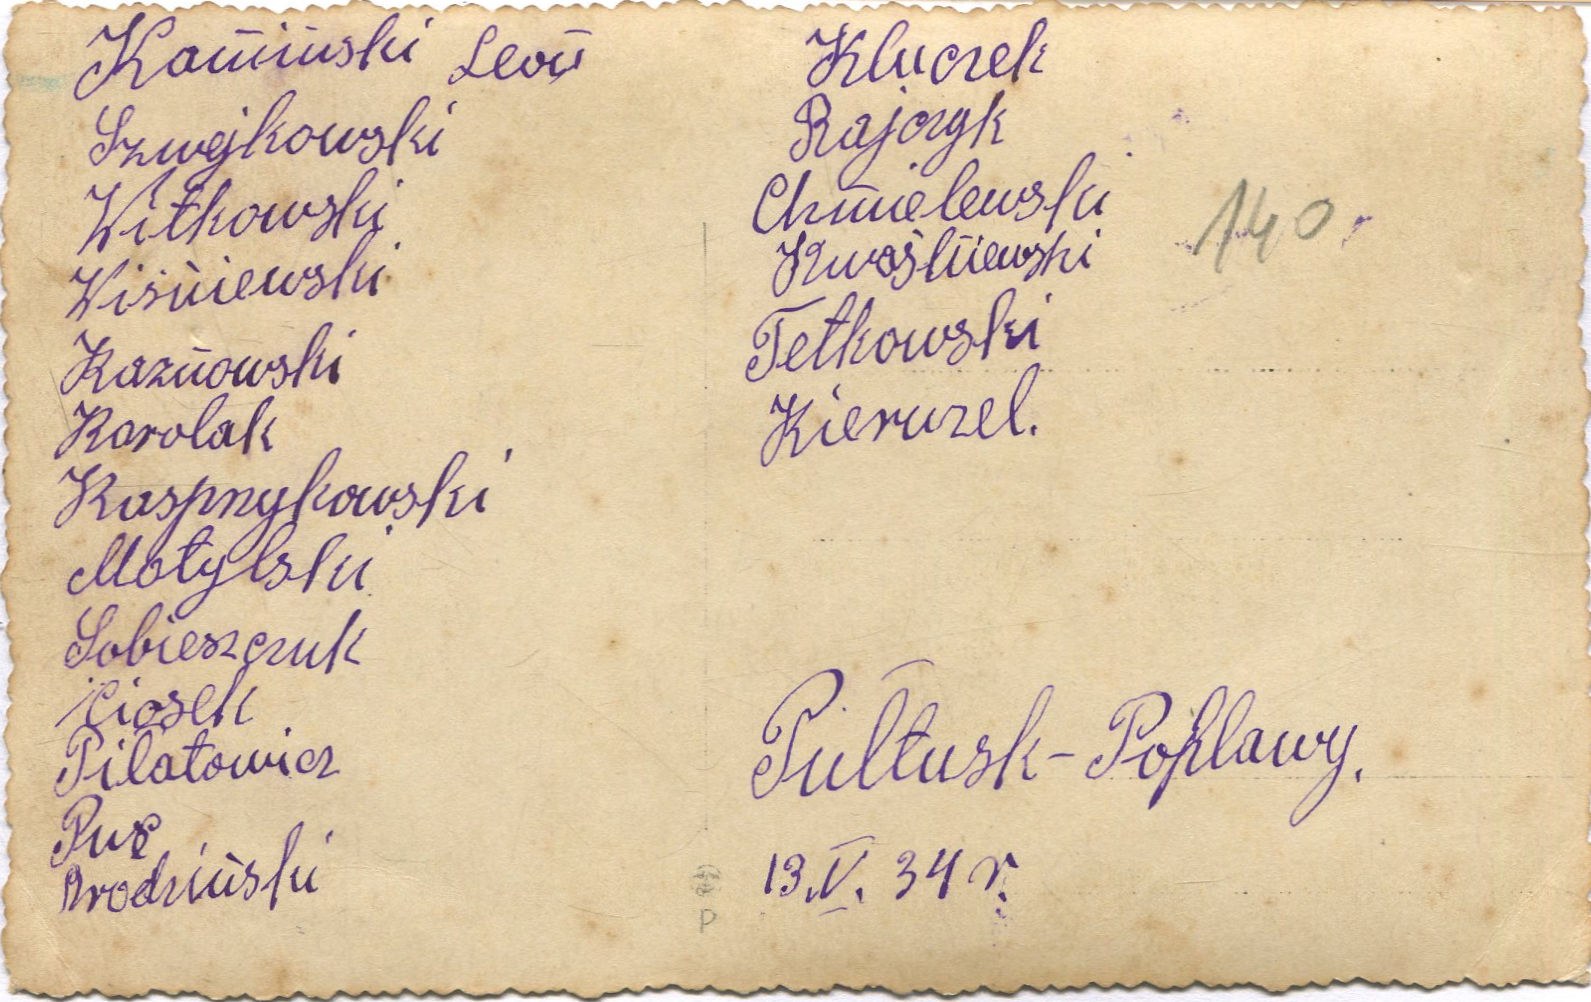 Kamiński Leon
Szwejkowski
Witkowski
Wiśniewski
Kaznowski
Karolak
Kasprzykowski
Motylski
Sobieszczuk
Ciosek
Piłatowicz
Pus
Brodziński
Kluczek
Rajczyk
Chmielewski
Kwaśniewski
Tetkowski
Kieruzel.
140.
Pułtusk - Popławy.
13.V. 34 r.
P